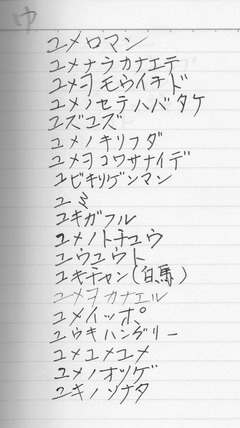 ゆ
ユメロマン
ユメナラカナエテ
ユメヲモウイチド
ユメノセテハバタケ
ユズユズ
ユメノキリフダ
ユメヲコワサナイデ
ユビキリゲンマン
ユミ
ユキガフル
ユメノトチュウ
ユウユウト
ユキチャン(白馬)
ユメヲカナエル
ユメイッポ
ユウキハングリー
ユメユメユメ
ユメノオツゲ
ユキノソナタ